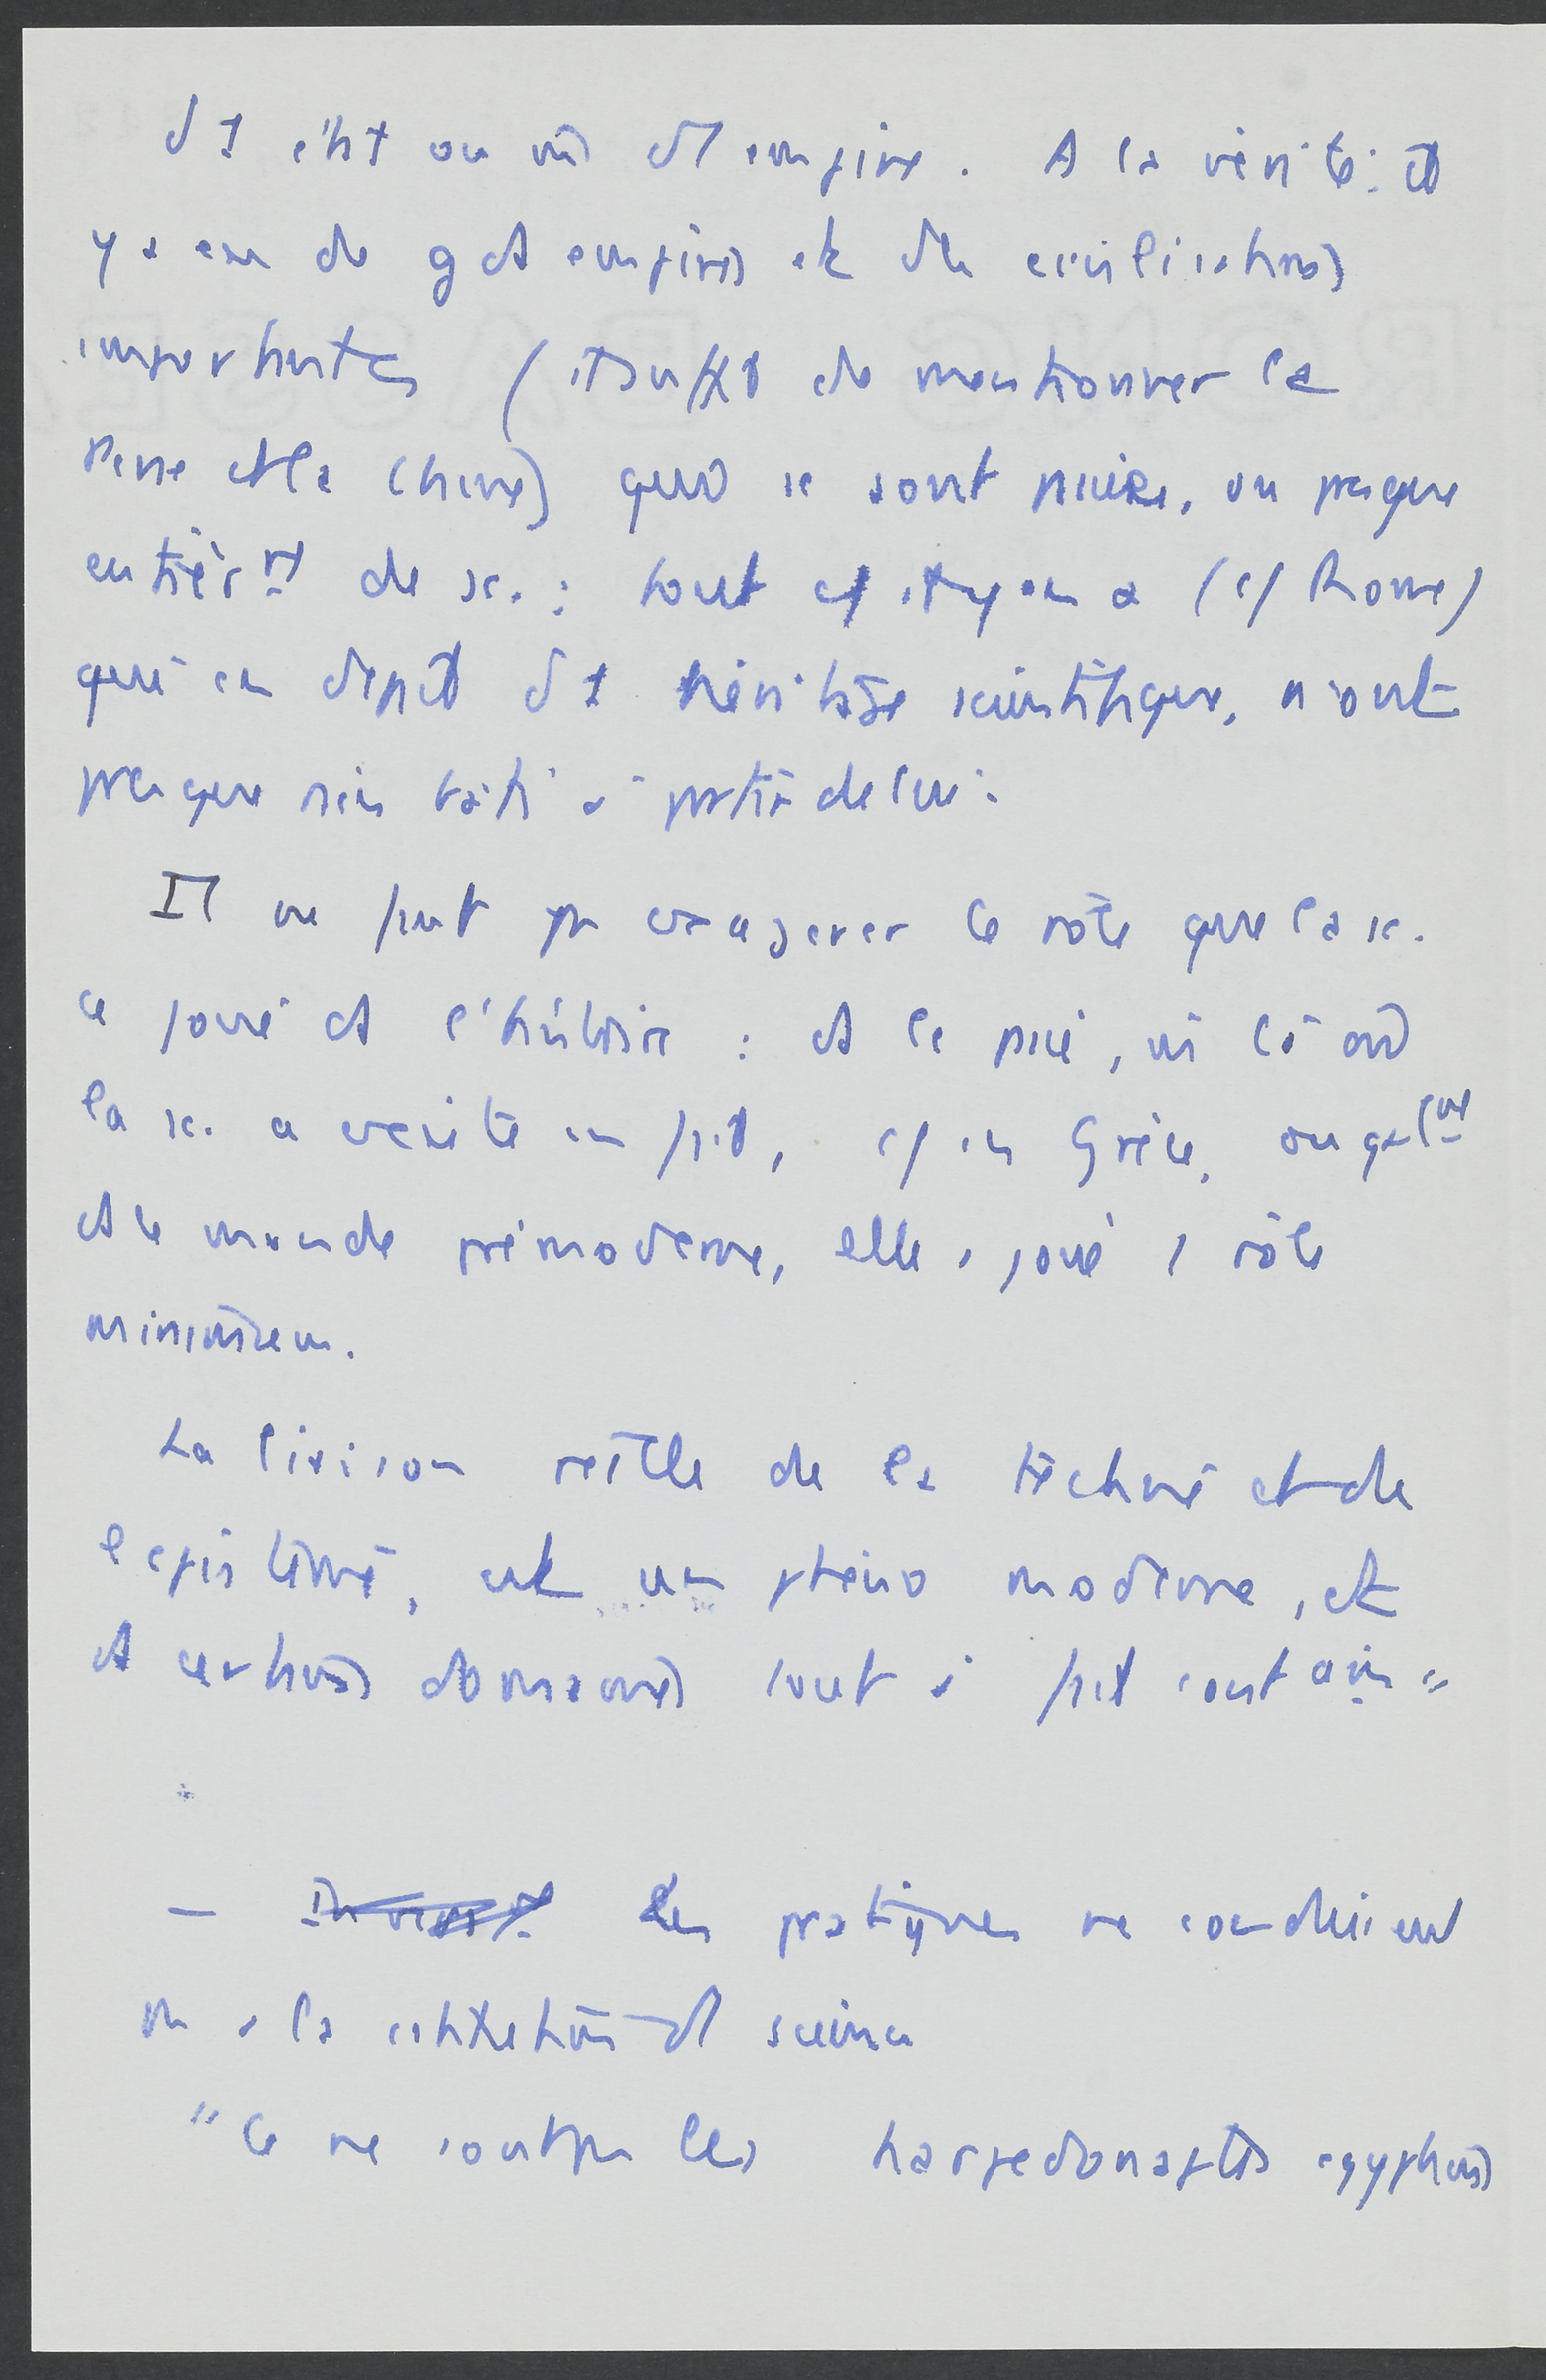 d'1 état ou un d'1 empire. A la vérité : il
y a eu de gds empires et des civilisations
importantes (il suffit de mentionner la
Perse et la Chine) qui se sont passées, ou presque
entièrt de sc. ; tout cf il y en a (cf Rome)
qui en dépit d'1 héritage scientifique, n'ont
presque rien bâti à partir de lui.
Il ne faut pas exagérer le rôle que la sc.
a joué ds l'histoire : ds le passé, même là où
la sc. a existé en fait, cf en Grèce, ou
ds le monde prémoderne, elle a joué 1 rôle
minimum.
La liaison réelle de la techné et de
l'epistémé, est un phéno moderne, et
ds certains domaines tout à fait contemp. "
— Les pratiques ne conduisent
pas à la constitution de science
" Ce ne sont pas les harpedonaptes égyptiens